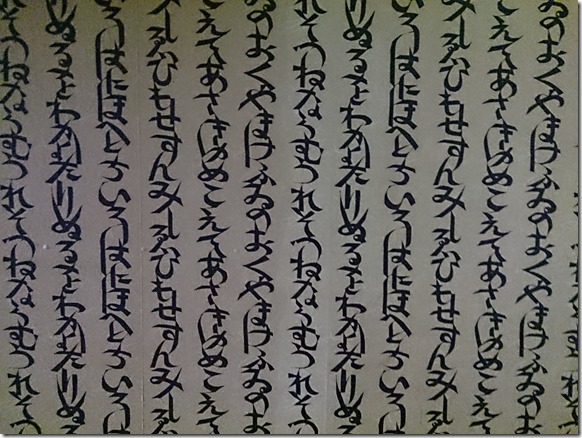 ゐのおくやまけふゐのおくやまけふゐのお
こえてあさきゆめこえてあさきゆめこえて
みしゑひもせすんみしゑひもせすんみし
ろはにほへとちいろはにほへとちいろは
りぬるをわかよたりぬるをわかよたりぬる
れそつねならむうれそつねならむうれそつ
ゐのおくやまけふゐのおくやまけふゐのお
こえてあさきゆめこえてあさきゆめこえて
みしゑひもせすんみしゑひもせすんみし
ろはにほへとちいろはにほへとちいろは
りぬるをわかよたりぬるをわかよたりぬる
れそつねならむうれそつねならむうれそつ